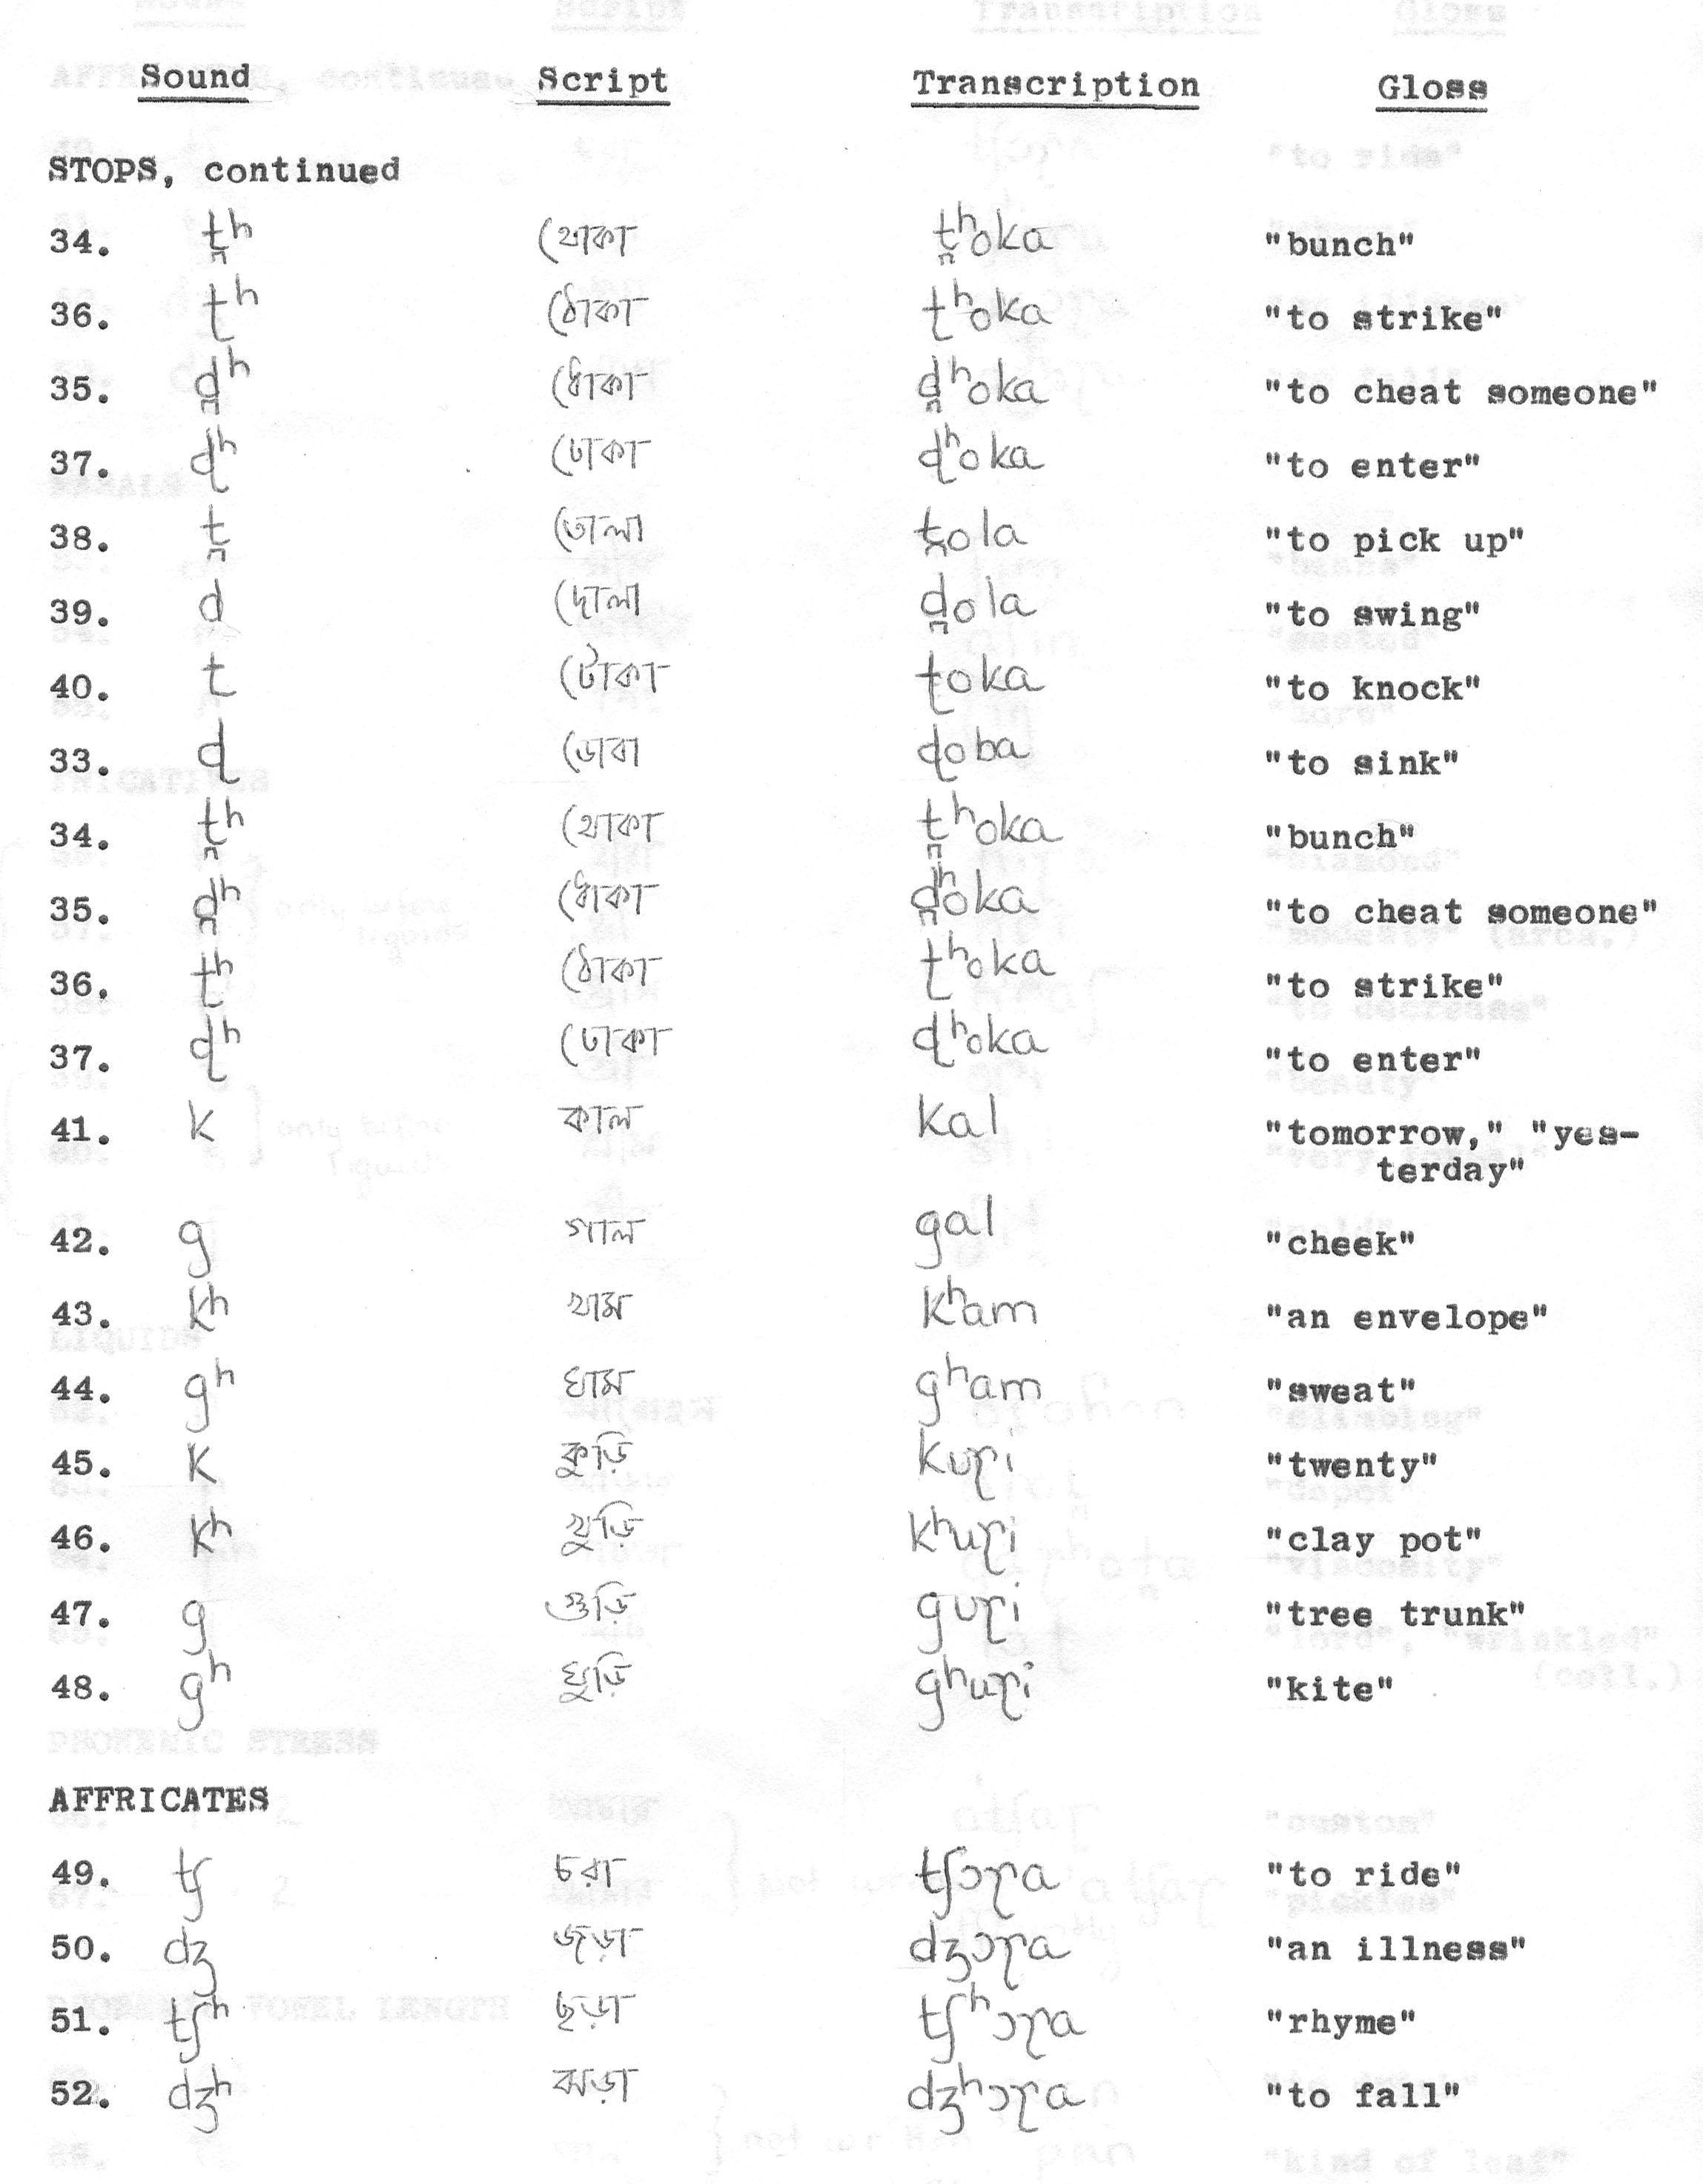 Sound Script Transcription Gloss
STOPS, continued
34. t̪ʰ থোকা t̪ʰoka "bunch"
36. ʈʰ ঠোকা ʈʰoka "to strike"
35. d̪ʰ ধোকা d̪ʰoka "to cheat someone"
37. ɖʰ ঢোকা ɖʰoka "to enter"
38. t̪ তোলা t̪ola "to pick up"
39. d দোলা d̪ola "to swing"
40. t টোকা ʈoka "to knock"
33. ɖ ডোবা ɖoba "to sink"
34. t̪ʰ থোকা t̪ʰoka "bunch"
35. d̪ʰ ধোকা d̪ʰoka "to cheat someone"
36. ʈʰ ঠোকা ʈʰoka "to strike"
37. ɖʰ ঢোকা ɖʰoka "to enter"
41. k কাল kal "tomorrow," "yes-
terday"
42. g গাল gal "cheek"
43. kʰ খাম kʰam "an envelope"
44. gʰ ঘাম gʰam "sweat"
45. k কুড়ি kuɽi "twenty"
46. kʰ খুড়ি kʰuɽi "clay pot"
47. g গুড়ি guɽi "tree trunk"
48. gʰ ঘুড়ি gʰuɽi "kite"
AFFRICATES
49. tʃ চরা tʃɔɽa "to ride"
50. dʒ জড়া dʒɔɽa "an illness"
51. tʃʰ ছড়া tʃʰɔɽa "rhyme"
52. dʒʰ ঝড়া dʒʰɔɽa "to fall"